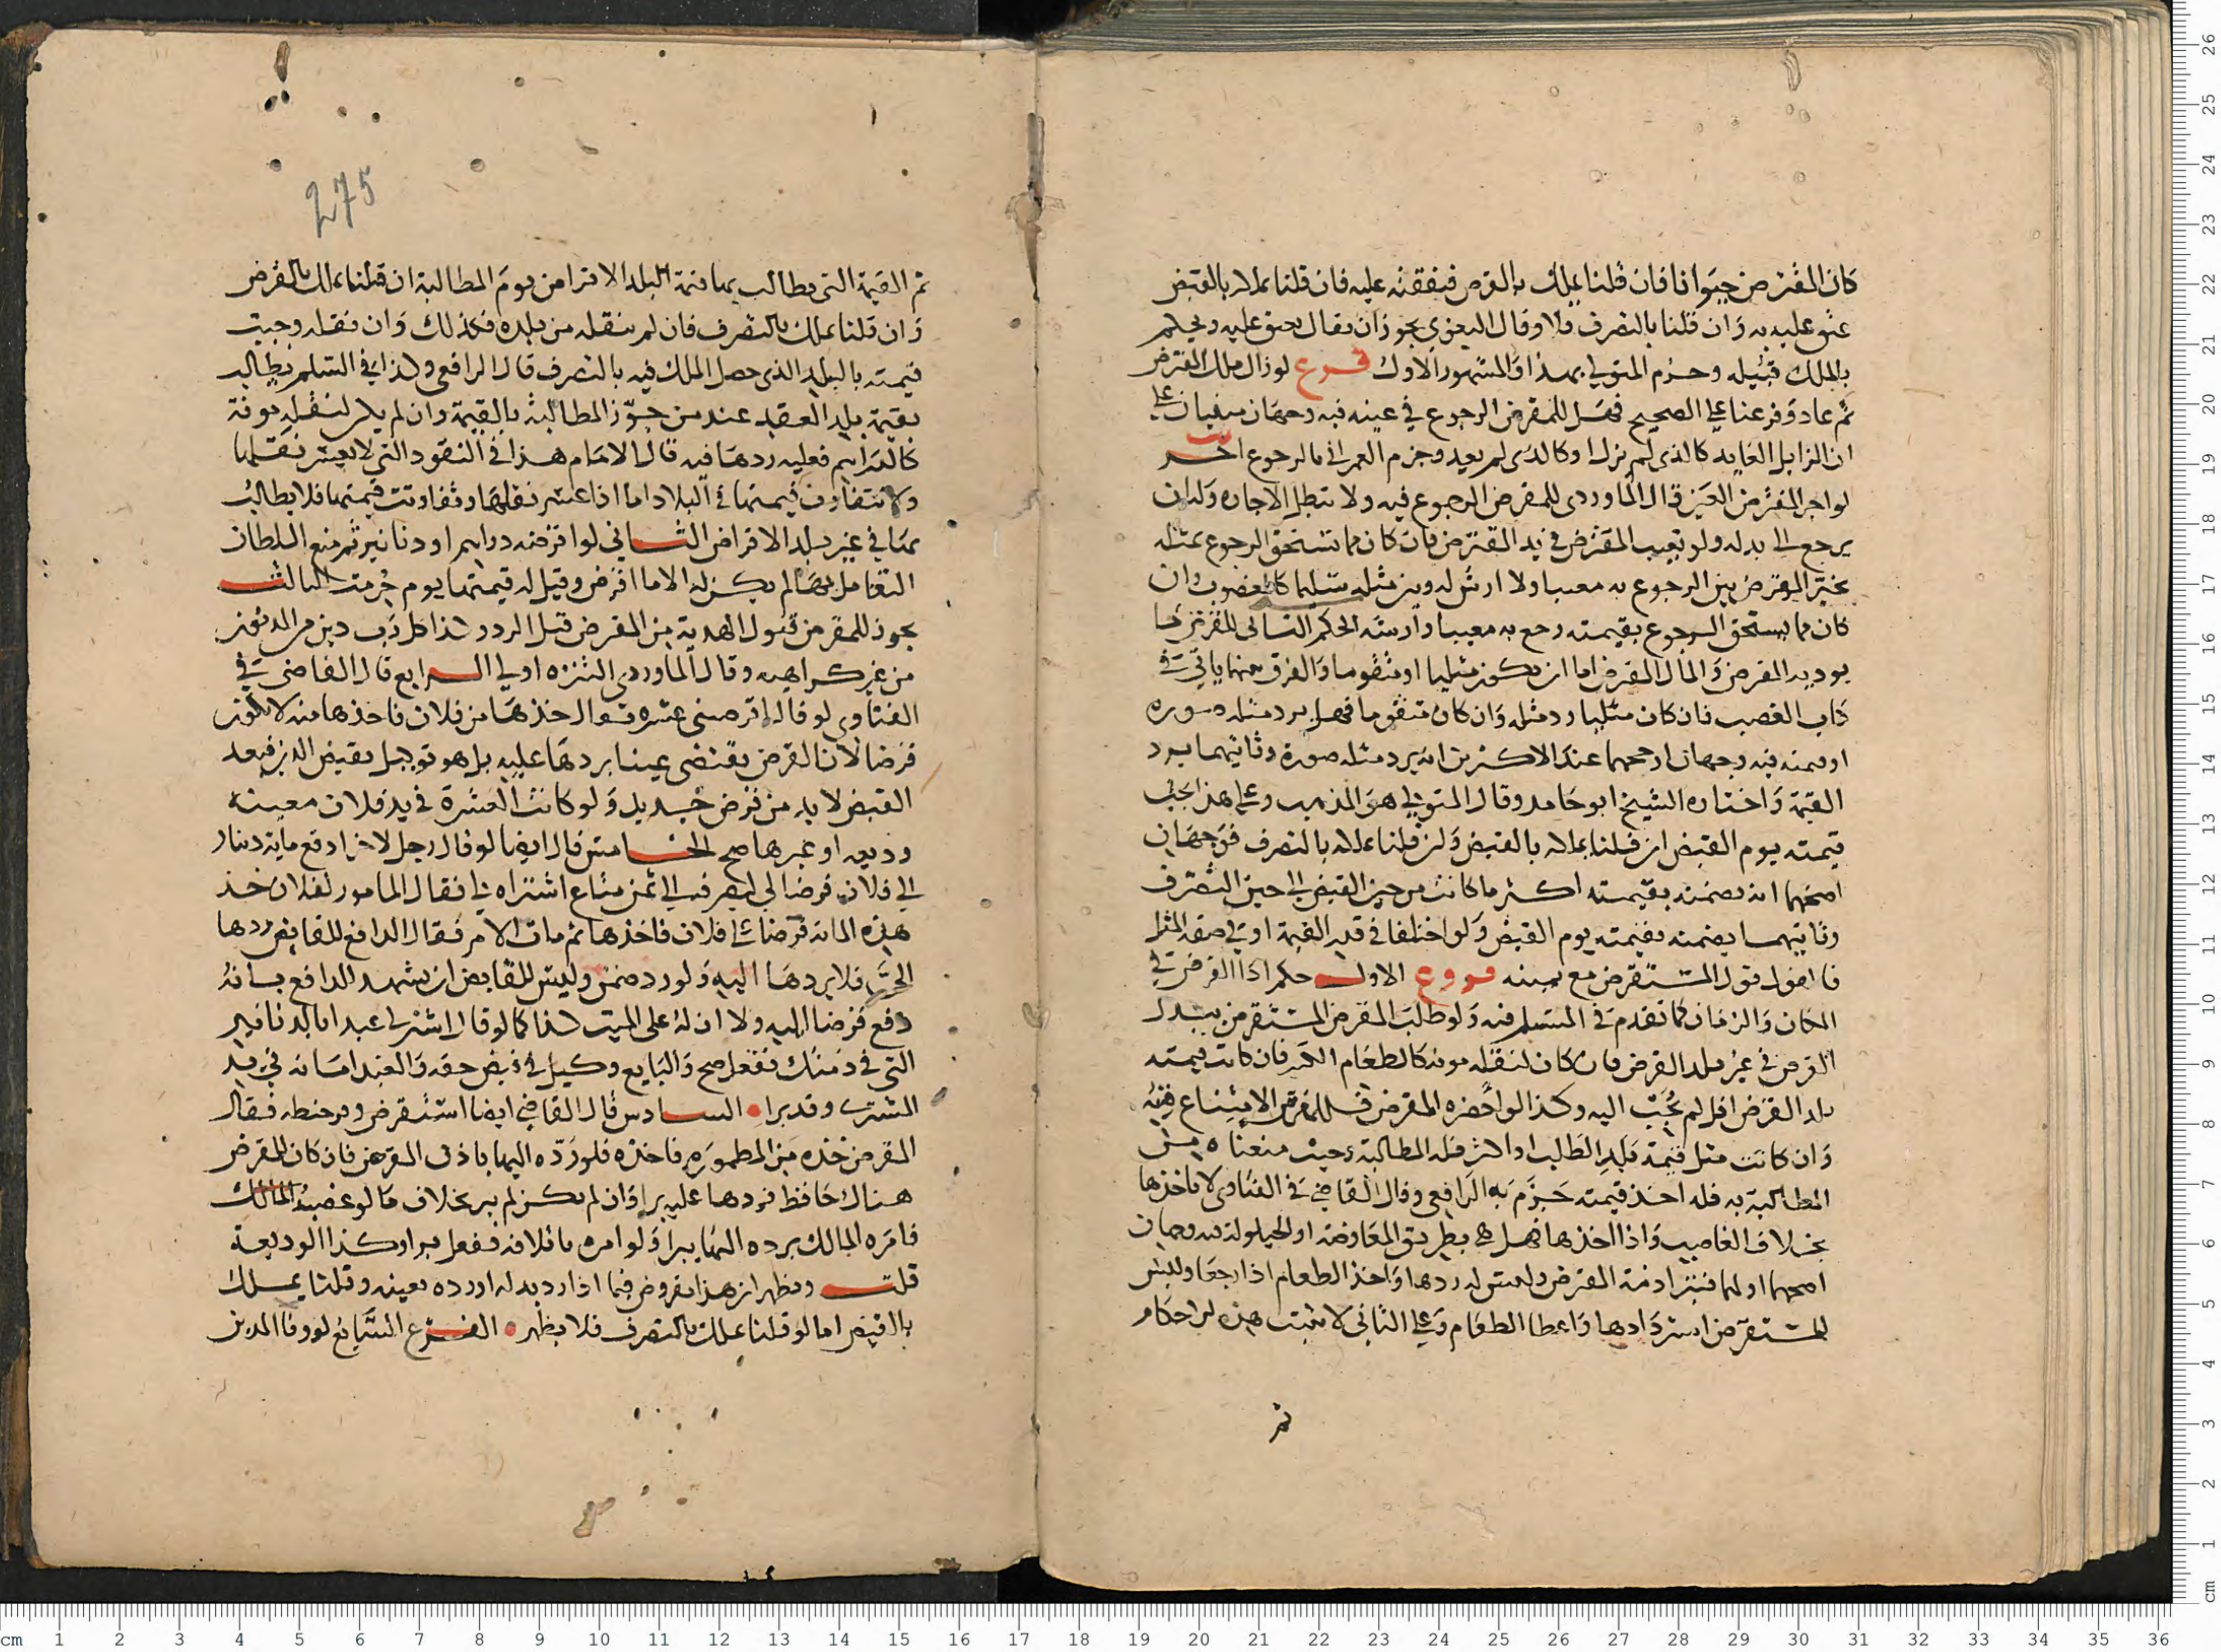 كان المقترض حيوانا فان قلنا يملك بالقرض فنفقته عليه فان قلنا يملك بالقبض
عتق عليه به وان قلنا بالتصرف فلا وقال البغوي يجوز ان يقال يعتق عليه ويحكم
بالملك قبيله وجزم المتولي بهذا والمشهور الاول فرع لو زال ملك المقترض
ثم عاد وفرعنا على الصحيح فهل للمقرض الرجوع في عينه فيه وجهان مبنيان على
ان الزايل العايد كالذي لم يزل او كالذي لم يعد وجزم العمراني بالرجوع اخر
لو اجر المقترض العين قال الماوردي للمقرض الرجوع فيه ولا تبطل الاجارة وله ان
يرجع الى بدله ولو تعيب المقترض في يد المقترض فان كان مما تستحق الرجوع بمثله
تخير المقرض بين الرجوع به معيبا ولا ارش له وبين مثله سليما كالمغصوب وان
كان مما يستحق الرجوع بقيمته رجع به معيبا وارشه الحكم الثاني للقرض فيما
يوديه المقرض والمال المقرض اما ان يكون مثليا او متقوما والفرق بينهما ياتي في
كتاب الغصب فان كان مثليا رد مثله وان كان متقوما فهل يرد مثله صورة
او قيمته فيه وجهان ارجحهما عند الاكثرين انه يرد مثله صورة وثانيهما يرد
القيمة واختاره الشيخ ابو حامد وقال المتولي هو المذهب وعلى هذا تجب
قيمته يوم القبض ان قلنا يملك بالقبض وان قلنا يملك بالتصرف فوجهان
اصحهما انه يضمنه بقيمته اكثر ما كانت من حين القبض الى حين التصرف
وثانيهما يضمنه بقيمته يوم القبض ولو اختلفا في قدر القيمة او في صفة المثل
فالقول قول المستقرض مع يمينه فروع الاول حكم اذا القرض في
المكان والزمان كما تقدم في المسلم فيه ولو طالب المقرض المستقرض ببدل
القرض في غير بلد القرض فان كان لنقله مونة كالطعام الكثير فان كانت قيمته
بلد القرض اقل لم يجب اليه وكذا لو احضره المقرض فللمقرض الامتناع منه
وان كانت مثل قيمة بلد الطلب او اكثر فله المطالبة وحيث منعناه من
المطالبة به فله اخذ قيمته جزم به الرافعي وقال القاضي في الفتاوي لا ياخذها
بخلاف الغاصب واذا اخذها فهل هي بطريق المعاوضة او الحيلولة فيه وجهان
اصحهما اولهما فتبرا ذمة المقترض وليس له ردها واخذ الطعام اذا رجعا وليس
للمستقرض استردادها واعطا الطعام وعلى الثاني لا تثبت هذه الاحكام
ثم
275
ثم القيمة التي يطالب بها قيمة البلد الاقراض يوم المطالبة ان قلنا يملك بالقرض
وان قلنا يملك بالتصرف فان لم ينقله من بلده فكذلك وان نقله وجبت
قيمته بالبلد الذي حصل الملك فيه بالتصرف قال الرافعي وكذا في السلم يطالبه
بقيمة بلد العقد عند من جوز المطالبة بالقيمة وان لم يكن لنقله مونة
كالدراهم فعليه ردها فيه قال الامام هذا في النقود التي لا يعسر نقلها
ولا تتفاوت قيمتها في البلاد اما اذا عسر نقلها وتفاوتت قيمتها فلا يطالب
بها في غير بلد الاقراض الثاني لو اقرضه دراهم او دنانير ثم منع السلطان
التعامل بها لم يكن له الا ما اقرض وقيل له قيمتها يوم حرمت الثالث
يجوز للمقرض قبول الهدية من المقرض قبل الرد وكذا كل رب دين من المديون
من غير كراهية وقال الماوردي التنزه اولى الرابع قال القاضي في
الفتاوي لو قال اقرضني عشرة فقال خذها من فلان فاخذها منه لا يكون
قرضا لان القرض يقتضي عينا يردها عليه بل هو توكيل بقبض الدين فبعد
القبض لا بد من قرض جديد ولو كانت العشرة في يد فلان معينة
وديعة او غيرها صح الخامس قال ايضا لو قال رجل لاخر ادفع ماية دينار
الى فلان قرضا لي ليصرف الى ثمن متاع اشتراه لي فقال المامور لفلان خذ
هذه الماية قرضا على فلان فاخذها ثم مات الامر فقال الدافع للقابض ردها
الي فلا يردها اليه ولو رد ضمن وليس للقابض ان يشهد للدافع بانه
دفع قرضا اليه ولا ان له على الميت كذا كما لو قال اشتر لي عبدا بالدنانير
التي في ذمتك ففعل صح والبايع وكيل في قبض حقه والعبد امانة في يد
المشتري وقد برا السادس قال القاضي ايضا استقرض وقر حنطة فقال
المقرض خذه من المطمورة فاخذه فلو رده اليها باذن المقرض فان كان للمقرض
هناك حافظ فردها عليه برا وان لم يكن لم يبر بخلاف ما لو غصبه المالك
فامره المالك برده اليها يبرا ولو امره باتلافه ففعل برا وكذا الوديعة
قلت ويظهر ان هذا مفروض فيما اذا رد بدله او رده بعينه وقلنا يملك
بالقبض اما لو قلنا يملك بالتصرف فلا يظهر الفرع السابع لو وفا المدين